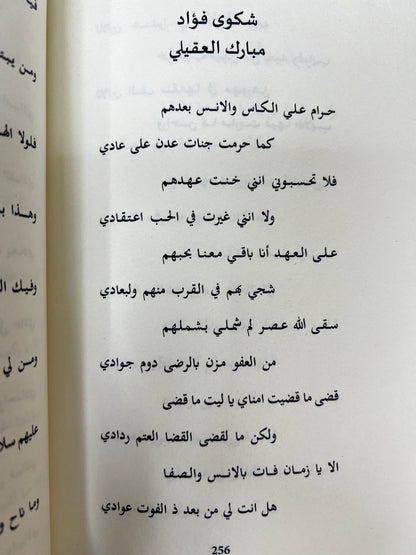 شكوى فؤاد
مبارك العقيلي
حرام علي الكاس والانس بعدهم
كما حرمت جنات عدن على عادي
فلا تحسبوني انني خنت عهدهم
ولا انني غيرت في الحب اعتقادي
على العهد أنا باقي معنا بحبهم
شجي بهم في القرب منهم ولبعادي
سقى الله عصر لم شملي بشملهم
من العفو مزن بالرضى دوم جوادي
قضى ما قضيت امناي يا ليت ما قضى
ولكن ما لقضى القضا العتم ردادي
الا يا زمان فات بالانس والصفا
هل انت لي من بعد ذ الفوت عوادي
256
ومن
فلولا
وهذا
وفيك
ومن لي
عليهم
وما